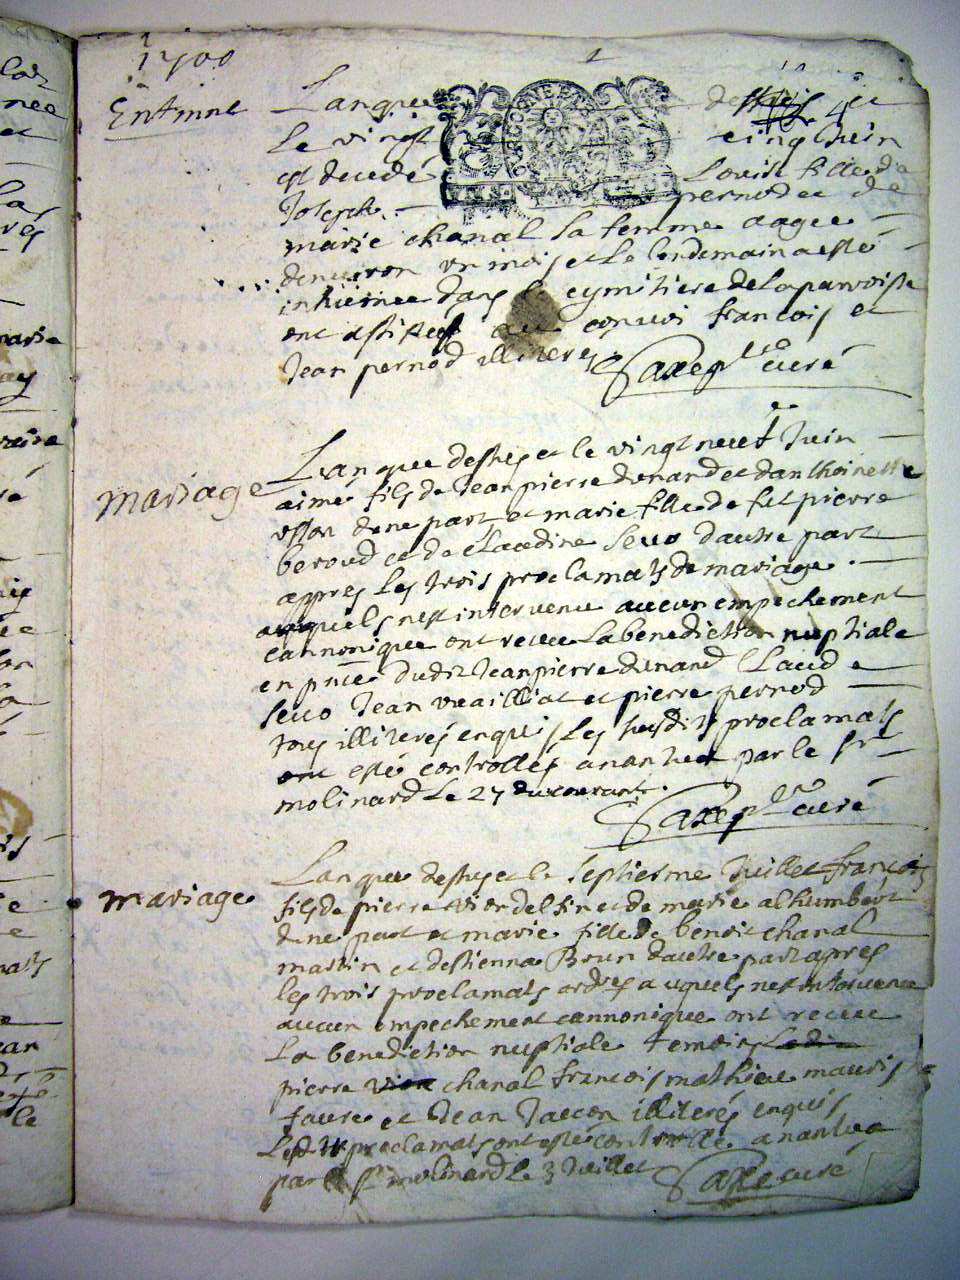 1700
1
Entmnt
L'an que dessus et
Le vingt cinq Juin
est decedé Louise fille de
Joseph pernod et de
marie chanal sa femme aagee
denviron un mois et le lendemain a esté
inhumee dans le cymitiere de la parroisse
ont assistes au convoi francois et
Jean pernod illiteres
Saxe pr curé
mariage
L'an que dessus et le vingt neuf Juin
aimé fils de Jean pierre dunand et d'anthoinette
dune part et marie fille de fut pierre
beroud et de Claudine Sevo dautre part
appres les trois proclamats de mariage
auxquels nest intervenu aucun empechement
cannonique ont receu la benediction nuptiale
en pnce dudit Jean pierre dunand Claude
Sevo Jean vuailliat et pierre pernod
tous illiterés enquis les susdits proclamats
ont esté controllés a nantua par le Sr
molinard le 27 du courant
Saxe pr curé
mariage
L'an que dessus et le septiesme Juillet francois
fils de pierre vion delfin et de marie alhumbert
dune part et marie fille de benoit chanal
martin et destienna Brun dautre part apres
les trois proclamats auxquels nest intervenu
aucun empechement cannonique ont receu
La benediction nuptiale temoins
pierre chanal francois mathieu mauris
faure et Jean Jacon illiterés enquis
Lesdts proclamats ont esté controllé a nantua
par Sr molinard le 3 Juillet
Saxe curé